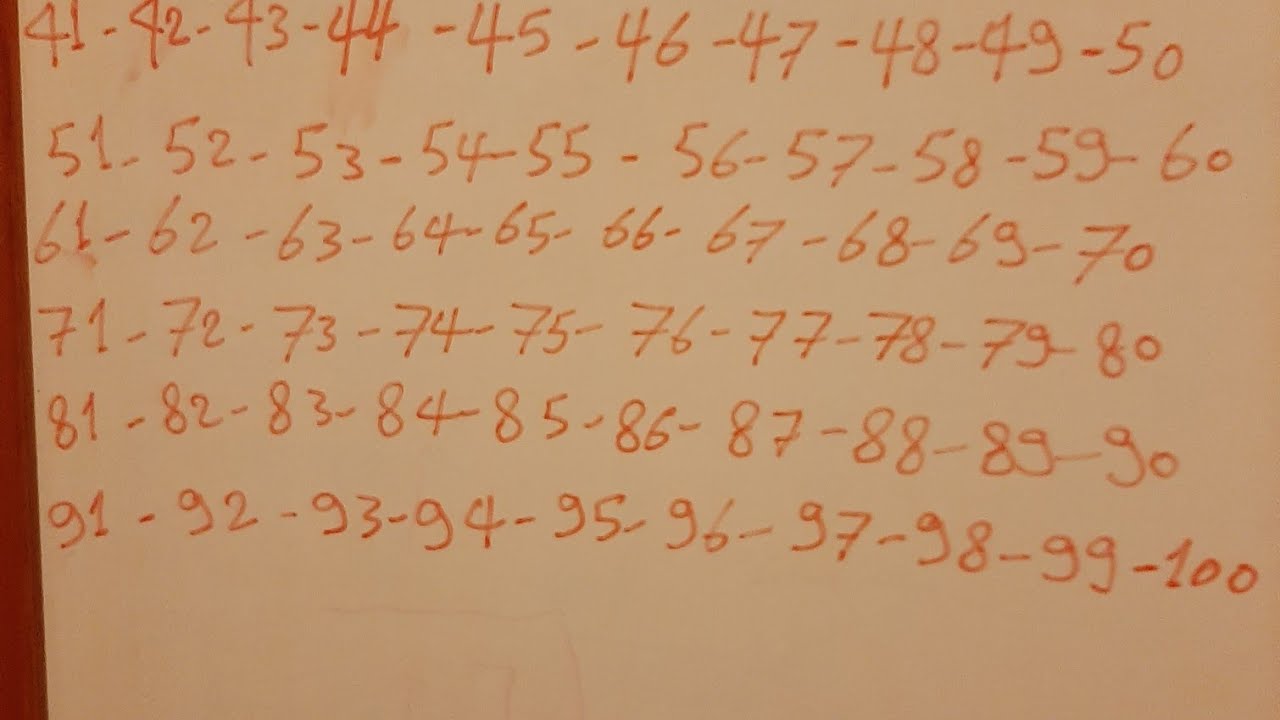 41-42-43-44-45-46-47-48-49-50
51-52-53-54-55-56-57-58-59-60
61-62-63-64-65-66-67-68-69-70
71-72-73-74-75-76-77-78-79-80
81-82-83-84-85-86-87-88-89-90
91-92-93-94-95-96-97-98-99-100